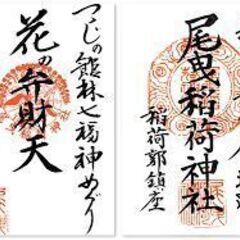 つつじの館林七福神めぐり
花の弁財天
尾曳稲荷神社
稲荷郭鎮座